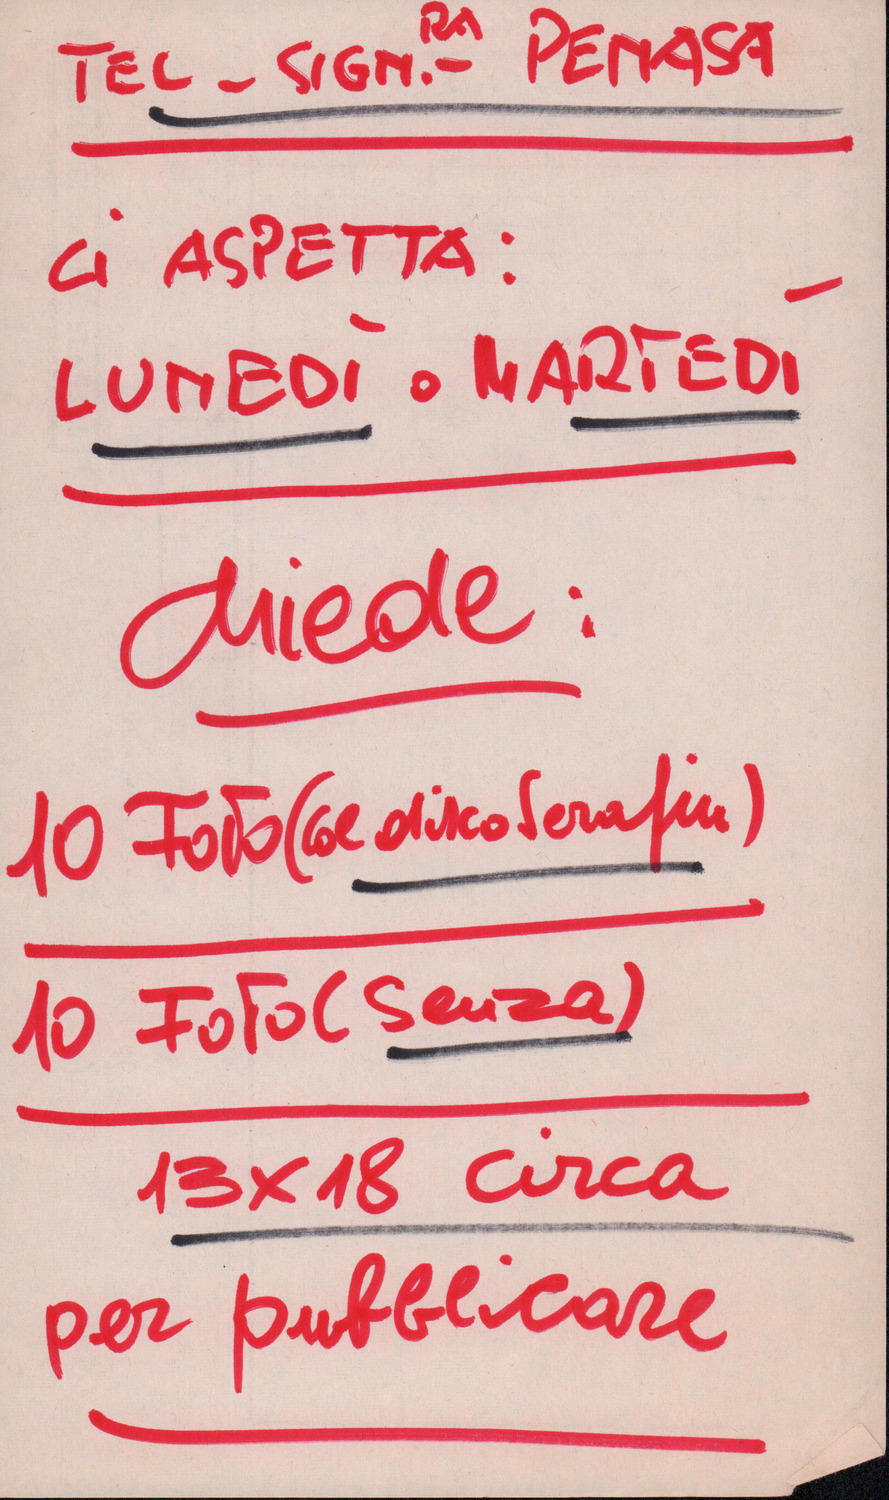 TEL - SIGN.RA PENASA
Ci ASPETTA:
LUNEDÌ o MARTEDÌ
chiede:
10 FOTO (col disco Serafin)
10 FOTO (Senza)
13x18 circa
per pubblicare